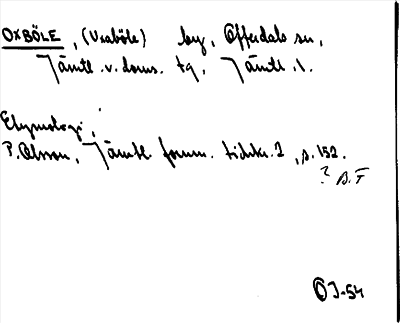 OXBÖLE, (Uxaböle) by, Offerdals sn,
Jämtl. v. doms. tg, Jämtl. l.
Etymologi:
P. Olsson, Jämtl. fornm. tidskr. 2, s. 152.
? s. F
ÖJ-54